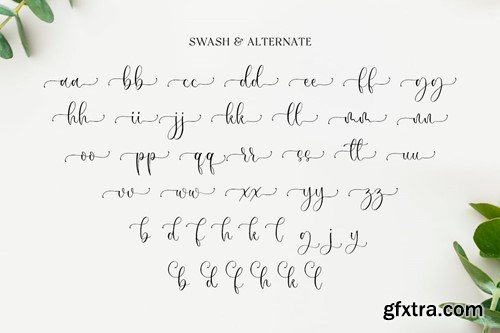 SWASH & ALTERNATE
aa bb cc dd ee ff gg
hh ii jj kk ll mm nn
oo pp qq rr ss tt uu
vv ww xx yy zz
b d f h k l g j y
b d f h k l
gfxtra.com